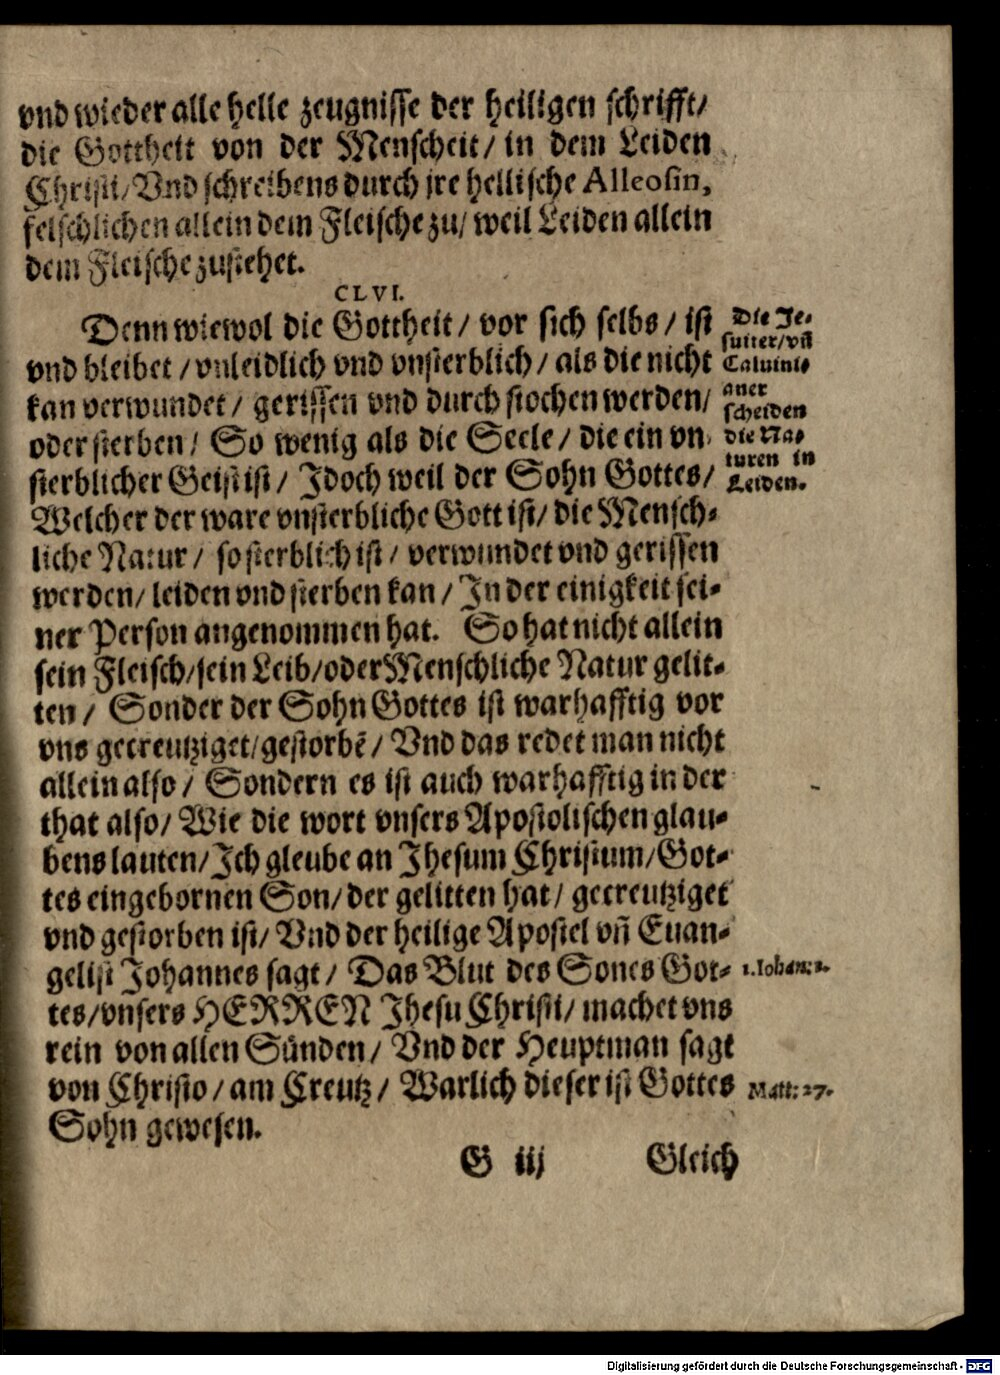 vnd wieder alle helle zeugnisse der heiligen schrifft/
die Gottheit von der Menscheit/ in dem Leiden
Christi/ Vnd schreibens durch jre hellische Alleosin,
felschlichen allein dem Fleische zu/ weil Leiden allein
dem Fleische zustehet.
CLVI.
Denn wiewol die Gottheit/ vor sich selbs/ ist
vnd bleibet/ vnleidlich vnd vnsterblich/ als die nicht
kan verwundet/ gerissen vnd durch stochen werden/
oder sterben/ So wenig als die Seele/ die ein vn-
sterblicher Geist ist/ Jdoch weil der Sohn Gottes/
Welcher der ware vnsterbliche Gott ist/ die Mensch-
liche Natur/ so sterblich ist/ verwundet vnd gerissen
werden/ leiden vnd sterben kan/ Jn der einigkeit sei-
ner Person angenommen hat. So hat nicht allein
sein Fleisch/ sein Leib/ oder Menschliche Natur gelit-
ten/ Sonder der Sohn Gottes ist warhafftig vor
vns gecreutziget/ gestorbē/ Vnd das redet man nicht
allein also/ Sondern es ist auch warhafftig in der
that also/ Wie die wort vnsers Apostolischen glau-
bens lauten/ Jch gleube an Jhesum Christum/ Got-
tes eingebornen Son/ der gelitten hat/ gecreutziget
vnd gestorben ist/ Vnd der heilige Apostel vn̄ Euan-
gelist Johannes sagt/ Das Blut des Sones Got-
tes/ vnsers HERREN Jhesu Christi/ machet vns
rein von allen Sünden/ Vnd der Heuptman sagt
von Christo/ am Creutz/ Warlich dieser ist Gottes
Sohn gewesen.
G iij Gleich
Die Je-
suiter/ vn̄
Caluini-
aner
scheiden
die Na-
turen in
Leiden.
1. Iohan: 1.
Matt: 27.
Digitalisierung gefördert durch die Deutsche Forschungsgemeinschaft - DFG